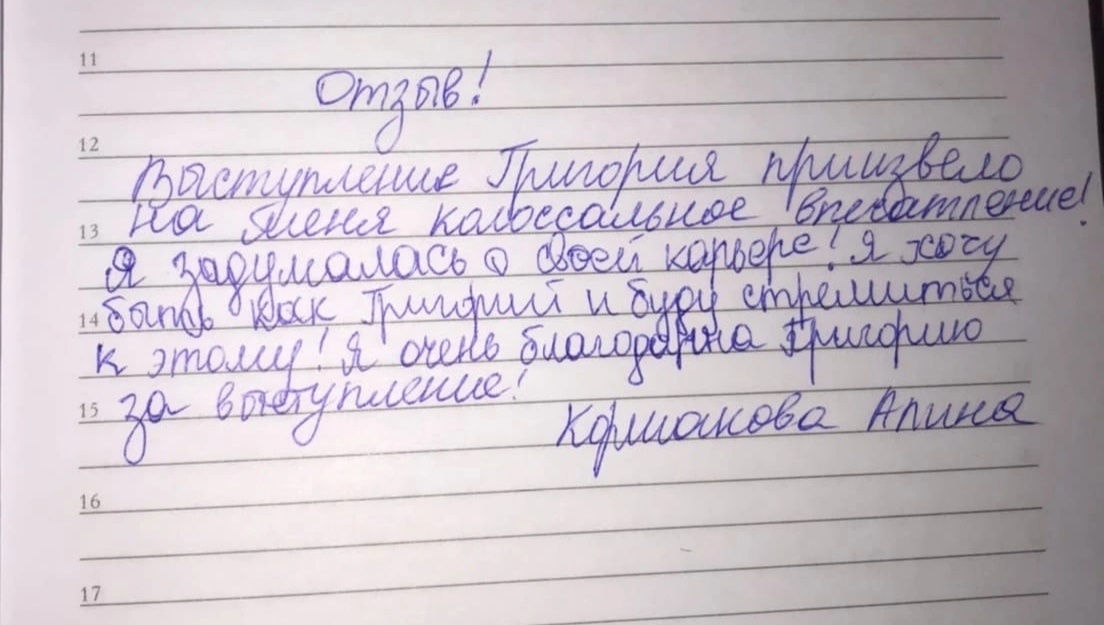 11
Отзыв!
12
Выступление Григория приизвело
на меня колоссальное впечатление!
13
Я задумалась о своей карьере! Я хочу
быть как Григорий и буду стремиться
14
к этому! Я очень благодарна Григорию
за выступление!
15
Алина
16
17